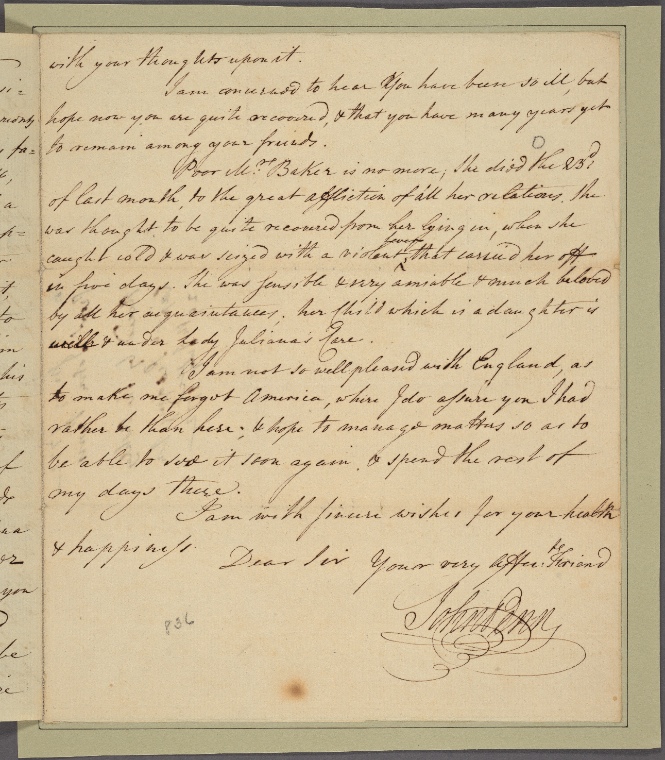 with your thoughts upon it.
I am concerned to hear You have been so ill, but
hope now you are quite recovered, & that you have many years yet
to remain among your friends.
Poor Mrs. Baker is no more; She died the 23d
of last month, to the great affliction of all her relations. She
was thought to be quite recovered from her lying in, when she
caught cold & was seized with a violent fever, that carried her off
in five days. She was sensible & very amiable & much beloved
by all her acquaintances. her Child which is a daughter is
with & under Lady Juliana's Care.
I am not so well pleased with England, as
to make me forget America, where I do assure you I had
rather be than here; & hope to manage matters so as to
be able to see it soon again, & spend the rest of
my days there.
I am with sincere wishes for your health
& happiness.
Dear Sir Your very Affec.te Friend
John Penn
836